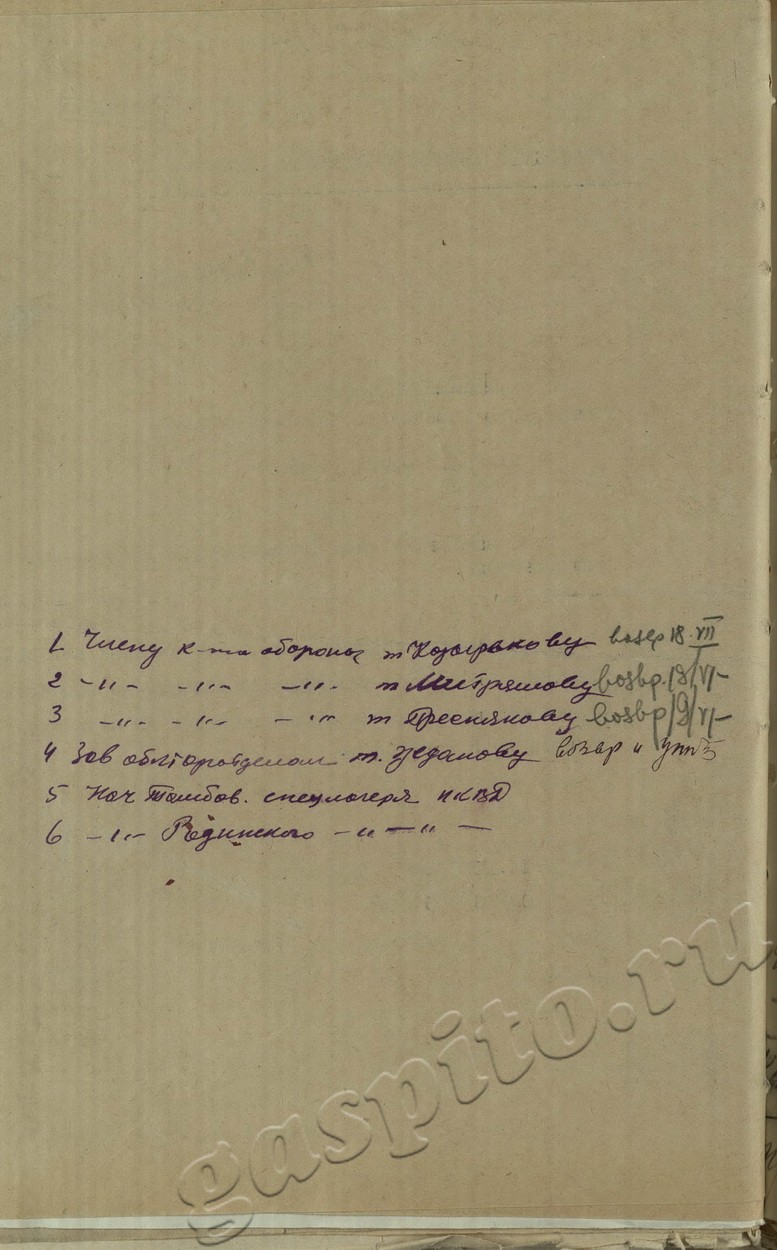 1. Члену к-та обороны т Козырькову возвр 18.VII
2 -"- -"- -"- т Мистрюкову возвр. 18/VI-
3 -"- -"- -"- т Преснякову возвр 19/VI-
4 Зав облторготделом т. Жданову возвр и
5 Нач Тамбов. спецлагеря НКВД
6 -"- Радинского -"- -"- -
gaspito.ru